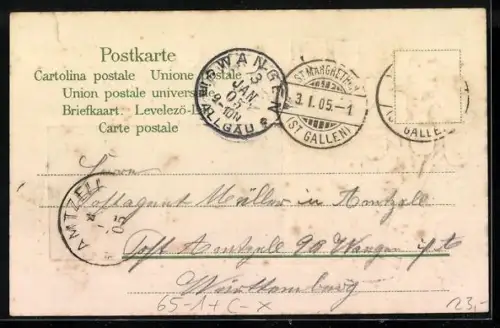 Postkarte
Cartolina postale Unione postale
Union postale univers
Briefkaart. Levelező-L
Carte postale
WANGEN
3
JAN
05
ALLGÄU
ST MARGRETHEN
3. I. 05.-1
(ST GALLEN)
(ST GALLEN)
Herrn
AMTZELL
Postagent Müller in Amtzell
Post Amtzell Wangen
Württemberg
65-1+C-X
23,-